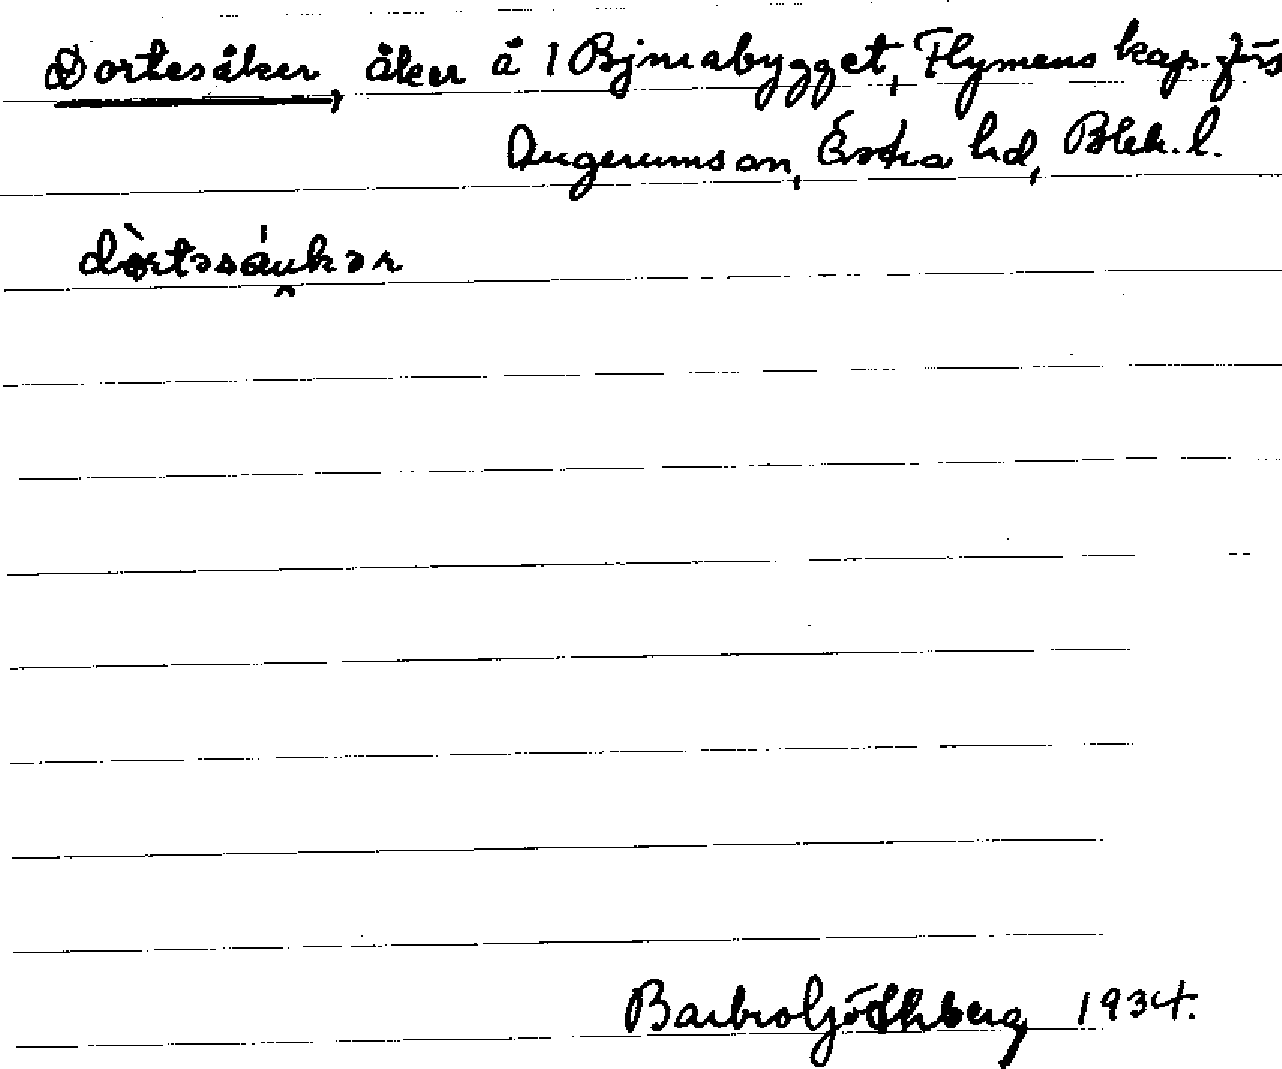 Dortesåker, åker å 1 Björnabygget, Flymens kap.förs
Augerums sn, Östra hd, Blek. l.
dòrtəsáu̯kər
Barbro Göthberg 1934.